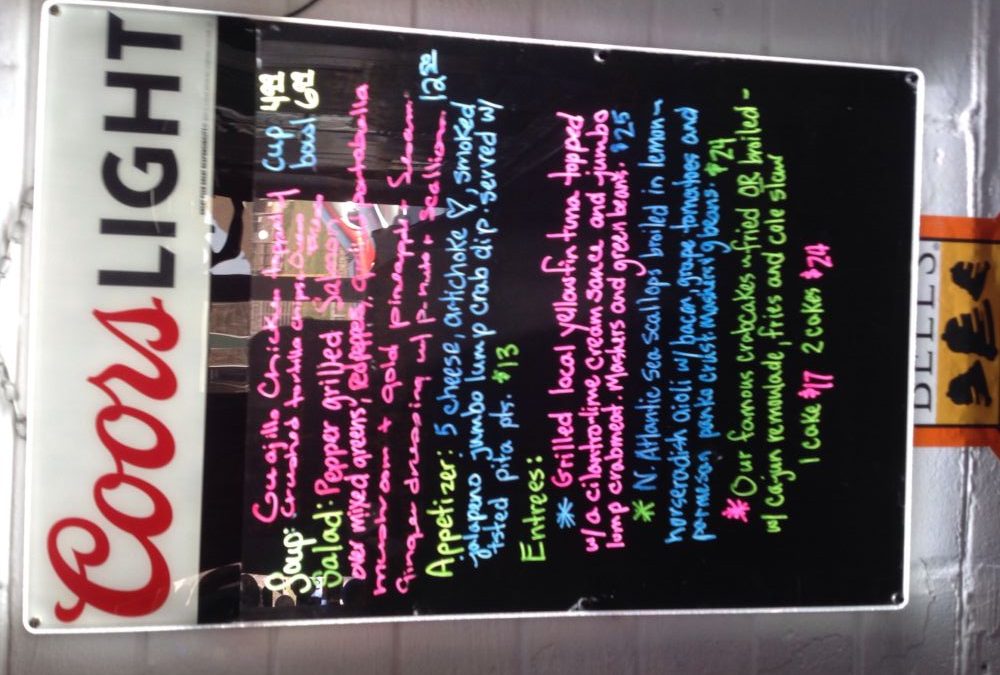 Coors LIGHT
Soup: Guajillo Chicken topped w/ cup 4.99
crushed tortilla chips, bowl 6.99
Salad: Pepper grilled Salmon
over mixed greens, Red Peppers, portabella
mushroom + gold pineapple - Sesame
Ginger dressing w/ p-nuts + Scallion. 12.50
Appetizer: 5 cheese, artichoke ♡, smoked
jalapeno jumbo lump crab dip. served w/
tsted pita pts. $13
Entrees:
* Grilled local yellowfin tuna topped
w/a cilantro-lime cream sauce and jumbo
lump crabmeat. Mashers and green beans. $25
* N. Atlantic Sea scallops broiled in lemon-
horseradish aioli w/ bacon, grape tomatoes and
parmesan panko crust mashers y g beans. $24
* Our famous crabcakes fried OR broiled -
w/ Cajun remoulade, fries and cole slaw
1 cake $17 2 cakes $24
BELL'S